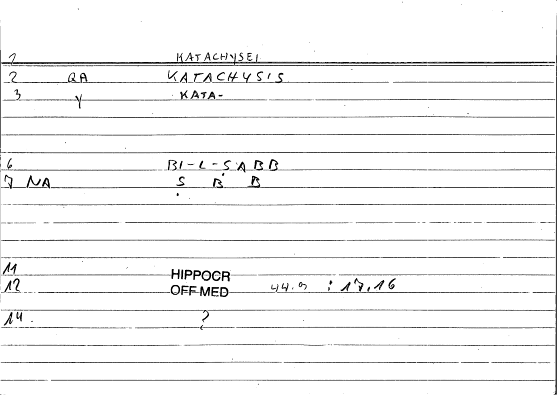 1 KATACHYSEI
2 QA KATACHYSIS
3 Y KATA-
6 BI-L-SABB
7 NA S B B
11
12 HIPPOCR
OFF MED 44.9 : 17,16
14. ?